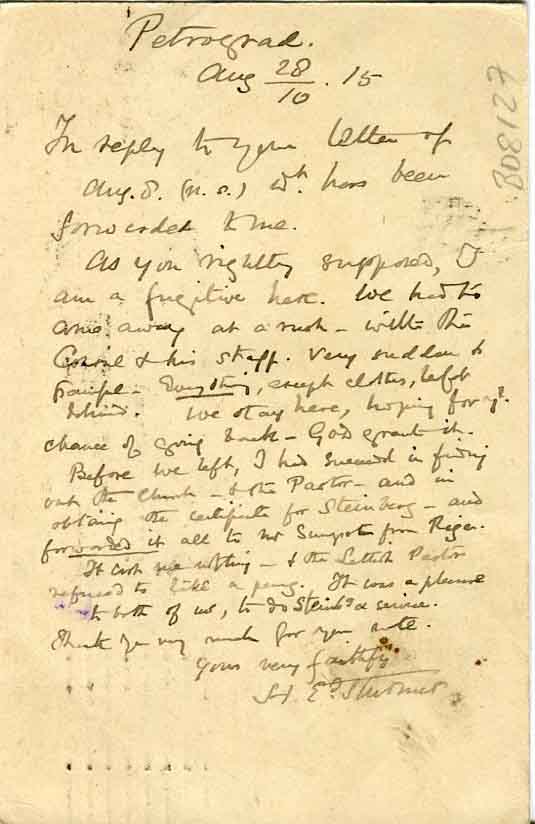 Petrograd.
Aug 28/10 . 15
BD8127
In reply to your letter of
Aug. 8. (n.s.) wh. has been
forwarded to me.
As you rightly supposed, I
am a fugitive here. We had to
come away at a rush - with the
Consul & his staff. Very sudden &
painful - Everything, except clothes, left
behind. We stay here, hoping for
chance of going back - God grant it.
Before we left, I had succeeded in finding
out the Church - & the Pastor - and in
obtaining the certificate for Steinberg - and
forwarded it all to Mr from Riga.
It cost me nothing - & the Lettish Pastor
refused to take a penny. It was a pleasure
to both of us, to do Steinbg a service.
Thank you very much for your note.
Yours very faithfy